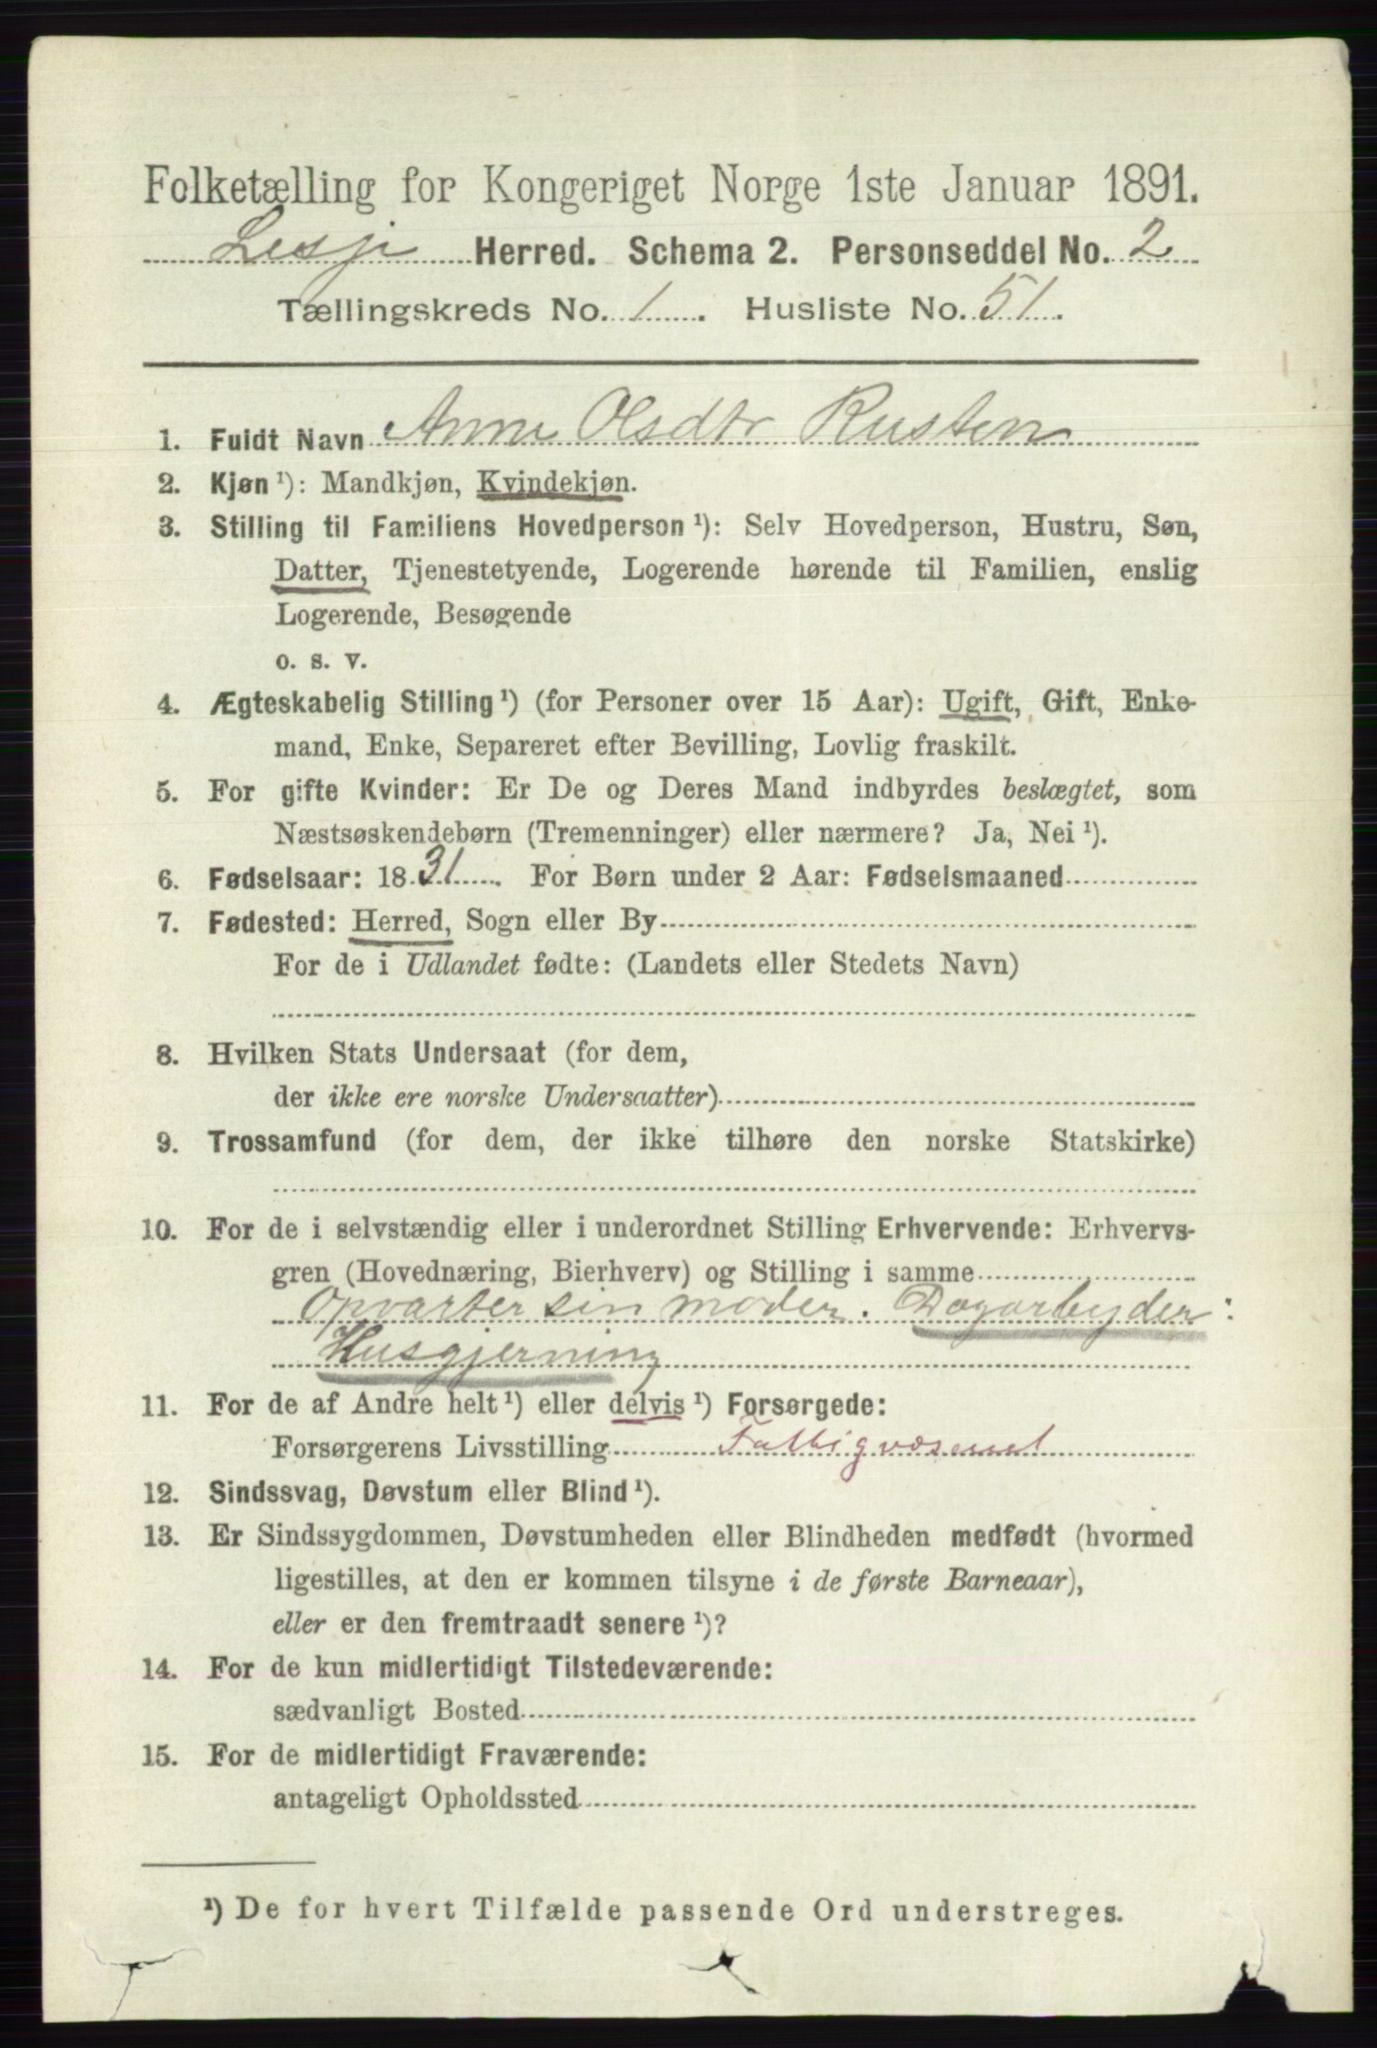 Folketælling for Kongeriget Norge 1ste Januar 1891.
Lesje Herred. Schema 2. Personseddel No. 2
Tællingskreds No. 1. Husliste No. 51.
1. Fuldt Navn Anne Olsdtr Rusten
2. Kjøn ¹): Mandkjøn, Kvindekjøn.
3. Stilling til Familiens Hovedperson ¹): Selv Hovedperson, Hustru, Søn,
Datter, Tjenestetyende, Logerende hørende til Familien, enslig
Logerende, Besøgende
o. s. v.
4. Ægteskabelig Stilling ¹) (for Personer over 15 Aar): Ugift, Gift, Enke-
mand, Enke, Separeret efter Bevilling, Lovlig fraskilt.
5. For gifte Kvinder: Er De og Deres Mand indbyrdes beslægtet, som
Næstsøskendebørn (Tremenninger) eller nærmere? Ja, Nei ¹).
6. Fødselsaar: 1831. For Børn under 2 Aar: Fødselsmaaned
7. Fødested: Herred, Sogn eller By
For de i Udlandet fødte: (Landets eller Stedets Navn)
8. Hvilken Stats Undersaat (for dem,
der ikke ere norske Undersaatter)
9. Trossamfund (for dem, der ikke tilhøre den norske Statskirke)
10. For de i selvstændig eller i underordnet Stilling Erhvervende: Erhvervs-
gren (Hovednæring, Bierhverv) og Stilling i samme
Opvarter sin moder. Dagarbyder:
Husgjerning
11. For de af Andre helt ¹) eller delvis ¹) Forsørgede:
Forsørgerens Livsstilling Fattigvæsenet
12. Sindssvag, Døvstum eller Blind ¹).
13. Er Sindssygdommen, Døvstumheden eller Blindheden medfødt (hvormed
ligestilles, at den er kommen tilsyne i de første Barneaar),
eller er den fremtraadt senere ¹)?
14. For de kun midlertidigt Tilstedeværende:
sædvanligt Bosted
15. For de midlertidigt Fraværende:
antageligt Opholdssted
¹) De for hvert Tilfælde passende Ord understreges.